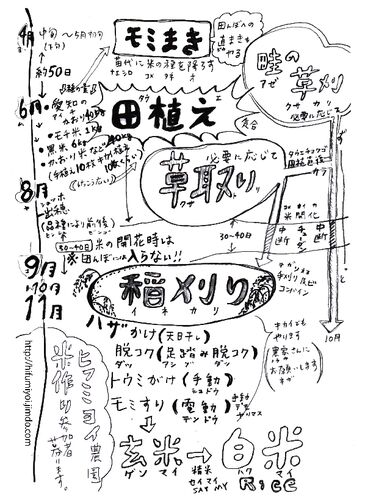 4月 中旬
～5月初旬
モミまき
苗代に米の種を降ろす
ナエシロ コメ タネ オ
田んぼへの
直まきも
やる
約50日
畦の
アゼ
草刈
クサ カリ
必要に応じて
6月
愛知の
かおり
モチ米 1kg
黒米 6kg
かおり米など
田植え
タ ウ エ
草取り
クサ
必要に応じて
8月
出穂
(品種により前後)
30~40日
30~40日
米の開花時は
※田んぼには入らない!!
米開花
中断
中断
9月
10月
11月
稲刈り
イネカリ
10月
ハザかけ(天日干し)
脱コク(足踏み脱コク)
ダッ アシ ブ ダッ
トウミがけ(手動)
シュドウ
モミすり(電動)
デンドウ
手動
デモ
ヤリマス
キカイでも
やります
農家さんに
お願いします
玄米→白米
ゲン マイ
精米
セイマイ
ハク マイ
RICE
ヒフミヨイ農園
米作り参加者
募ります。
http://hifumiyoi.jimdo.com/